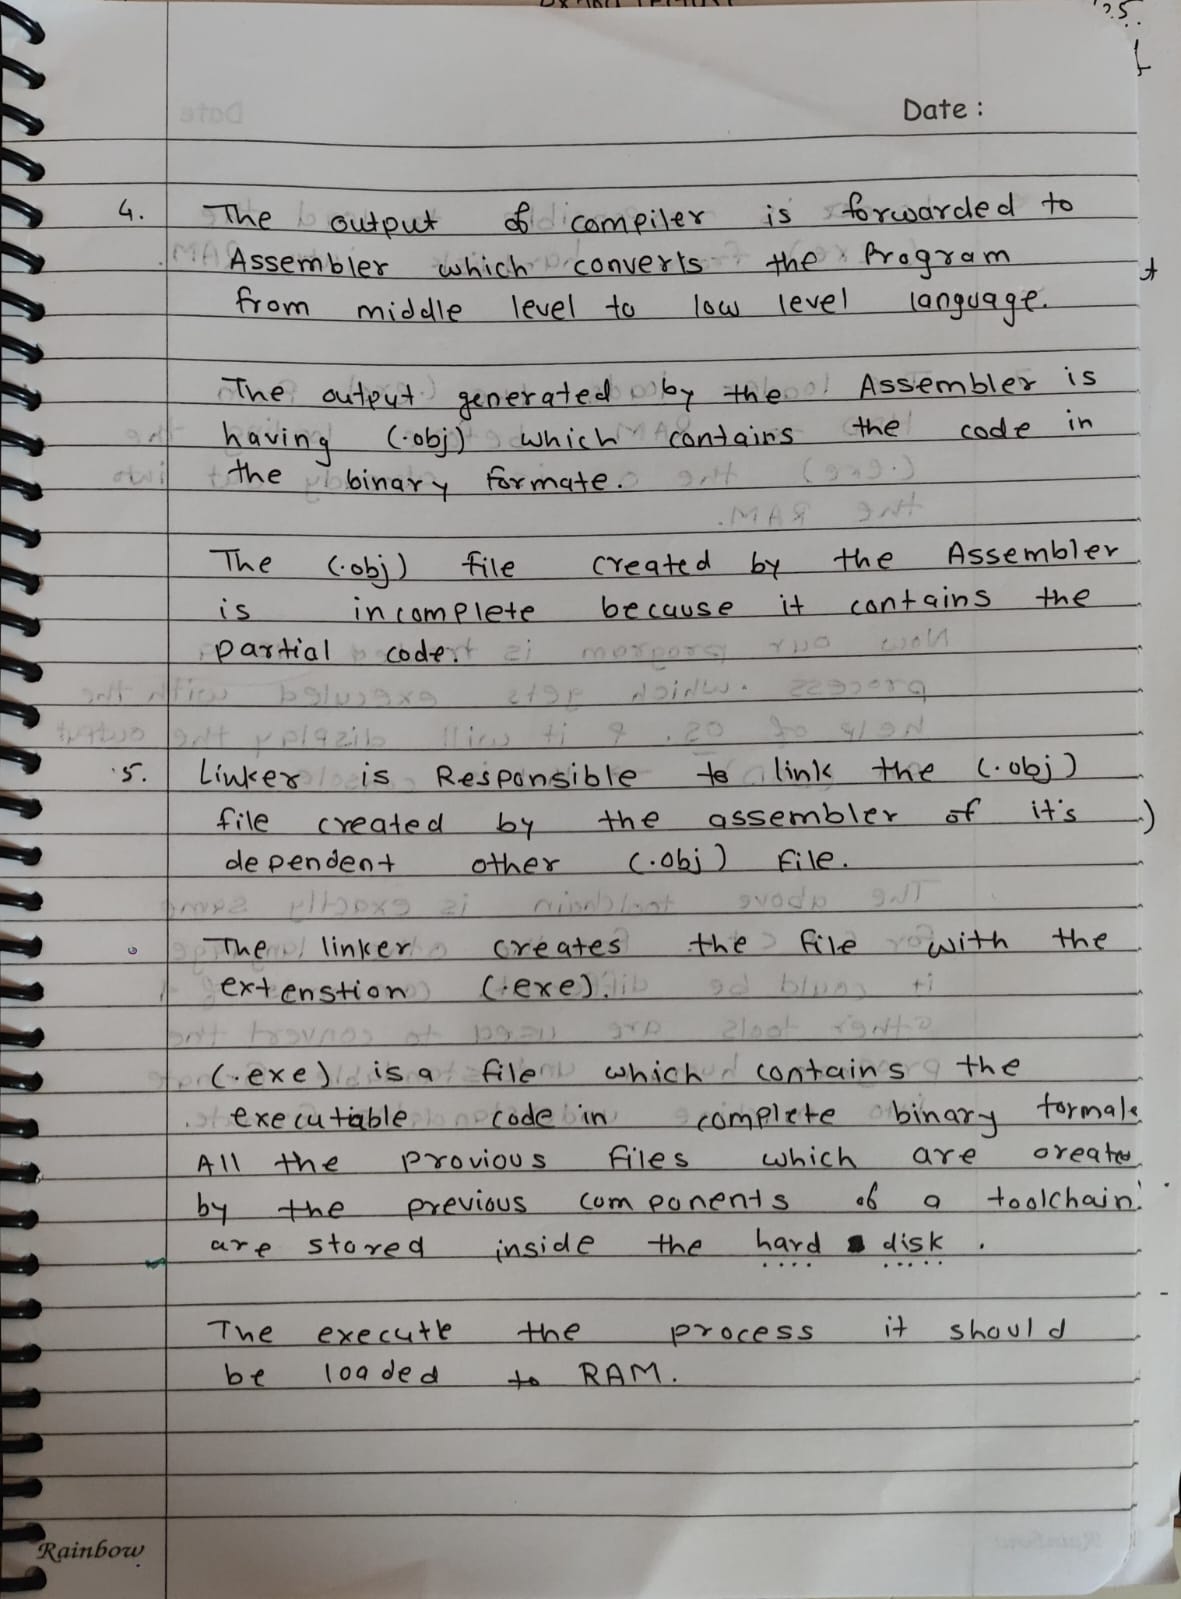 Date :
4. The output of compiler is forwarded to
Assembler which converts the Program
from middle level to low level language.
The output generated by the Assembler is
having (.obj) which contains the code in
the binary formate.
The (.obj) file created by the Assembler
is incomplete because it contains the
partial code.
5. Linker is Responsible to link the (.obj)
file created by the assembler of it's
dependent other (.obj) file.
The linker creates the file with the
extenstion (.exe).
(.exe) is a file which contains the
executiable code in complete binary formate
All the provious files which are create
by the previous components of a toolchain
are stored inside the hard disk .
The execute the process it should
be loaded to RAM.
Rainbow